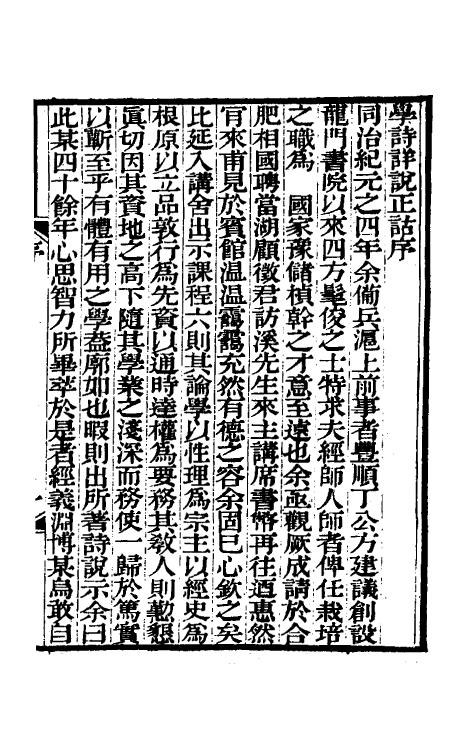 學詩詳說正詁序
同治紀元之四年余備兵滬上前事者豐順丁公方建議創設
龍門書院以來四方髦俊之士特求夫經師人師者俾任栽培
之職為　國家豫儲楨幹之才意至遠也余亟觀厥成請於合
肥相國聘當湖顧徵君訪溪先生來主講席書幣再往迺惠然
肎來甫見於賓館温温靄靄充然有德之容余固已心欽之矣
比延入講舍出示課程六則其論學以性理為宗主以經史為
根原以立品敦行為先資以通時達權為要務其敎人則勤懇
眞切因其資地之高下隨其學業之淺深而務使一歸於篤實
以蘄至乎有體有用之學葢廓如也暇則出所著詩說示余曰
此某四十餘年心思智力所畢萃於是者經義淵博某烏敢自
序
一